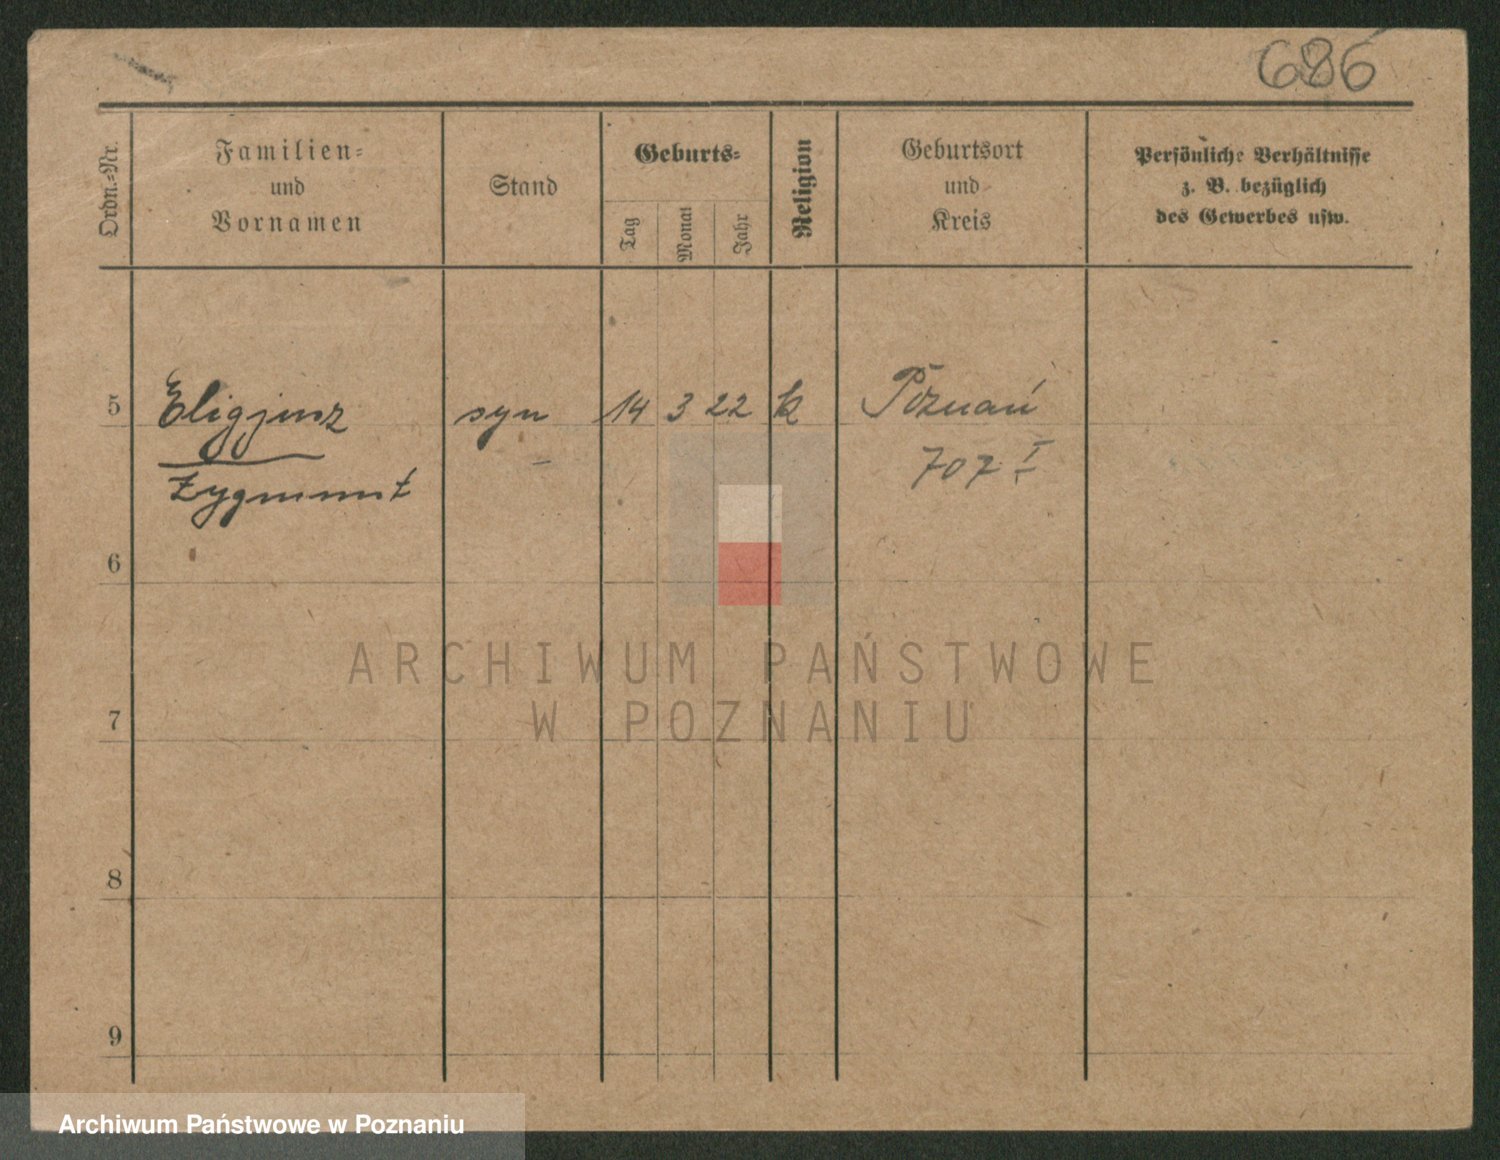 686
Ordn.-Nr.
Familien-
und
Vornamen
Stand
Geburts-
Tag
Monat
Jahr
Religion
Geburtsort
und
Kreis
Persönliche Verhältnisse
z. B. bezüglich
des Gewerbes usw.
5 Eligjusz syn 14 3 22 k Poznań
Zygmunt 707 I
6
7
8
9
ARCHIWUM PAŃSTWOWE
W POZNANIU
Archiwum Państwowe w Poznaniu